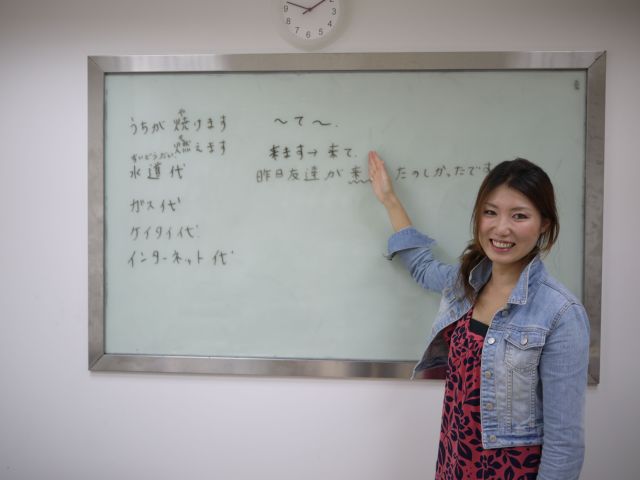 うちが 焼けます
や
燃えます
も
水道代
すいどうだい
ガス代
ケイタイ代
インターネット代
〜て〜.
来ます→来て.
昨日友達が来 たのしかったです